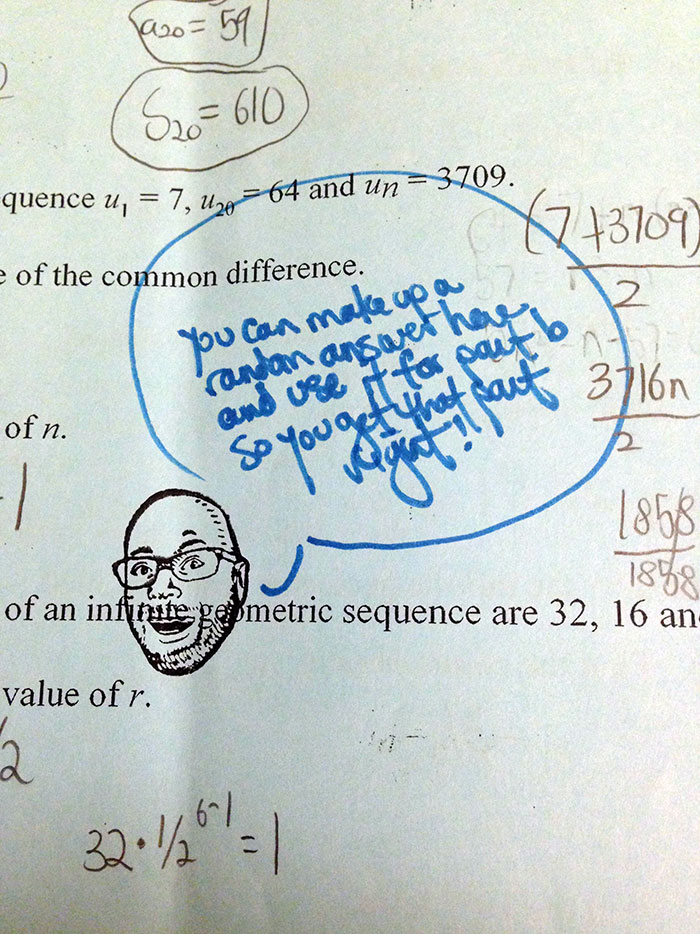 a20 = 59
S20 = 610
quence u1 = 7, u20 = 64 and un = 3709.
(7+3709)
2
e of the common difference.
you can make up a
randan answer here
and use it for part b
so you get that part
right!
3716n
2
of n.
1
1858
1858
of an infinite geometric sequence are 32, 16 an
value of r.
/2
32·1/2^6-1 = 1